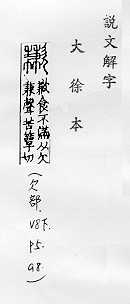 說文解字
大徐本
歉
歉食不滿从欠
兼聲苦簟切
(欠部. V8下. P5. a8.)